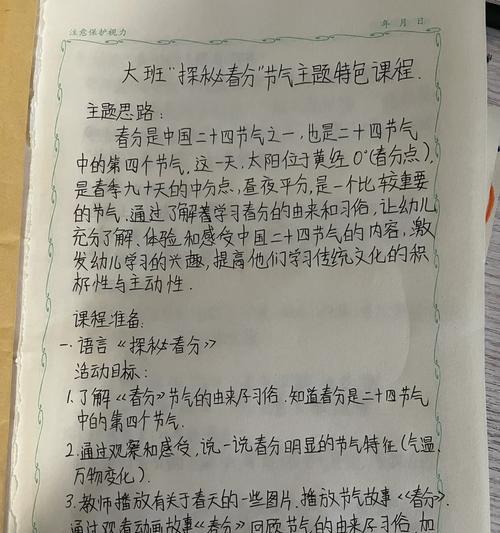 注意保护视力
年 月 日
大班“探秘春分”节气主题特色课程.
主题思路:
春分是中国二十四节气之一,也是二十四节气
中的第四个节气,这一天,太阳位于黄经0°(春分点),
是春季九十天的中分点,昼夜平分,是一个比较重要
的节气.通过了解着学习春分的由来和习俗,让幼儿
充分了解、体验和感受中国二十四节气的内容,激
发幼儿学习的兴趣,提高他们学习传统文化的积
极性与主动性.
课程准备:
一.语言《探秘春分》
活动目标:
1.了解《春分》节气的由来及习俗.知道春分是二十四节气
中的第四个节气.
2.通过观察和感受,说一说春分明显的节气特征(气温、
万物变化).
3.教师播放有关于春天的一些图片.播放节气故事《春分》.
通过观看动画故事《春分》回顾节气的由来和习俗,加